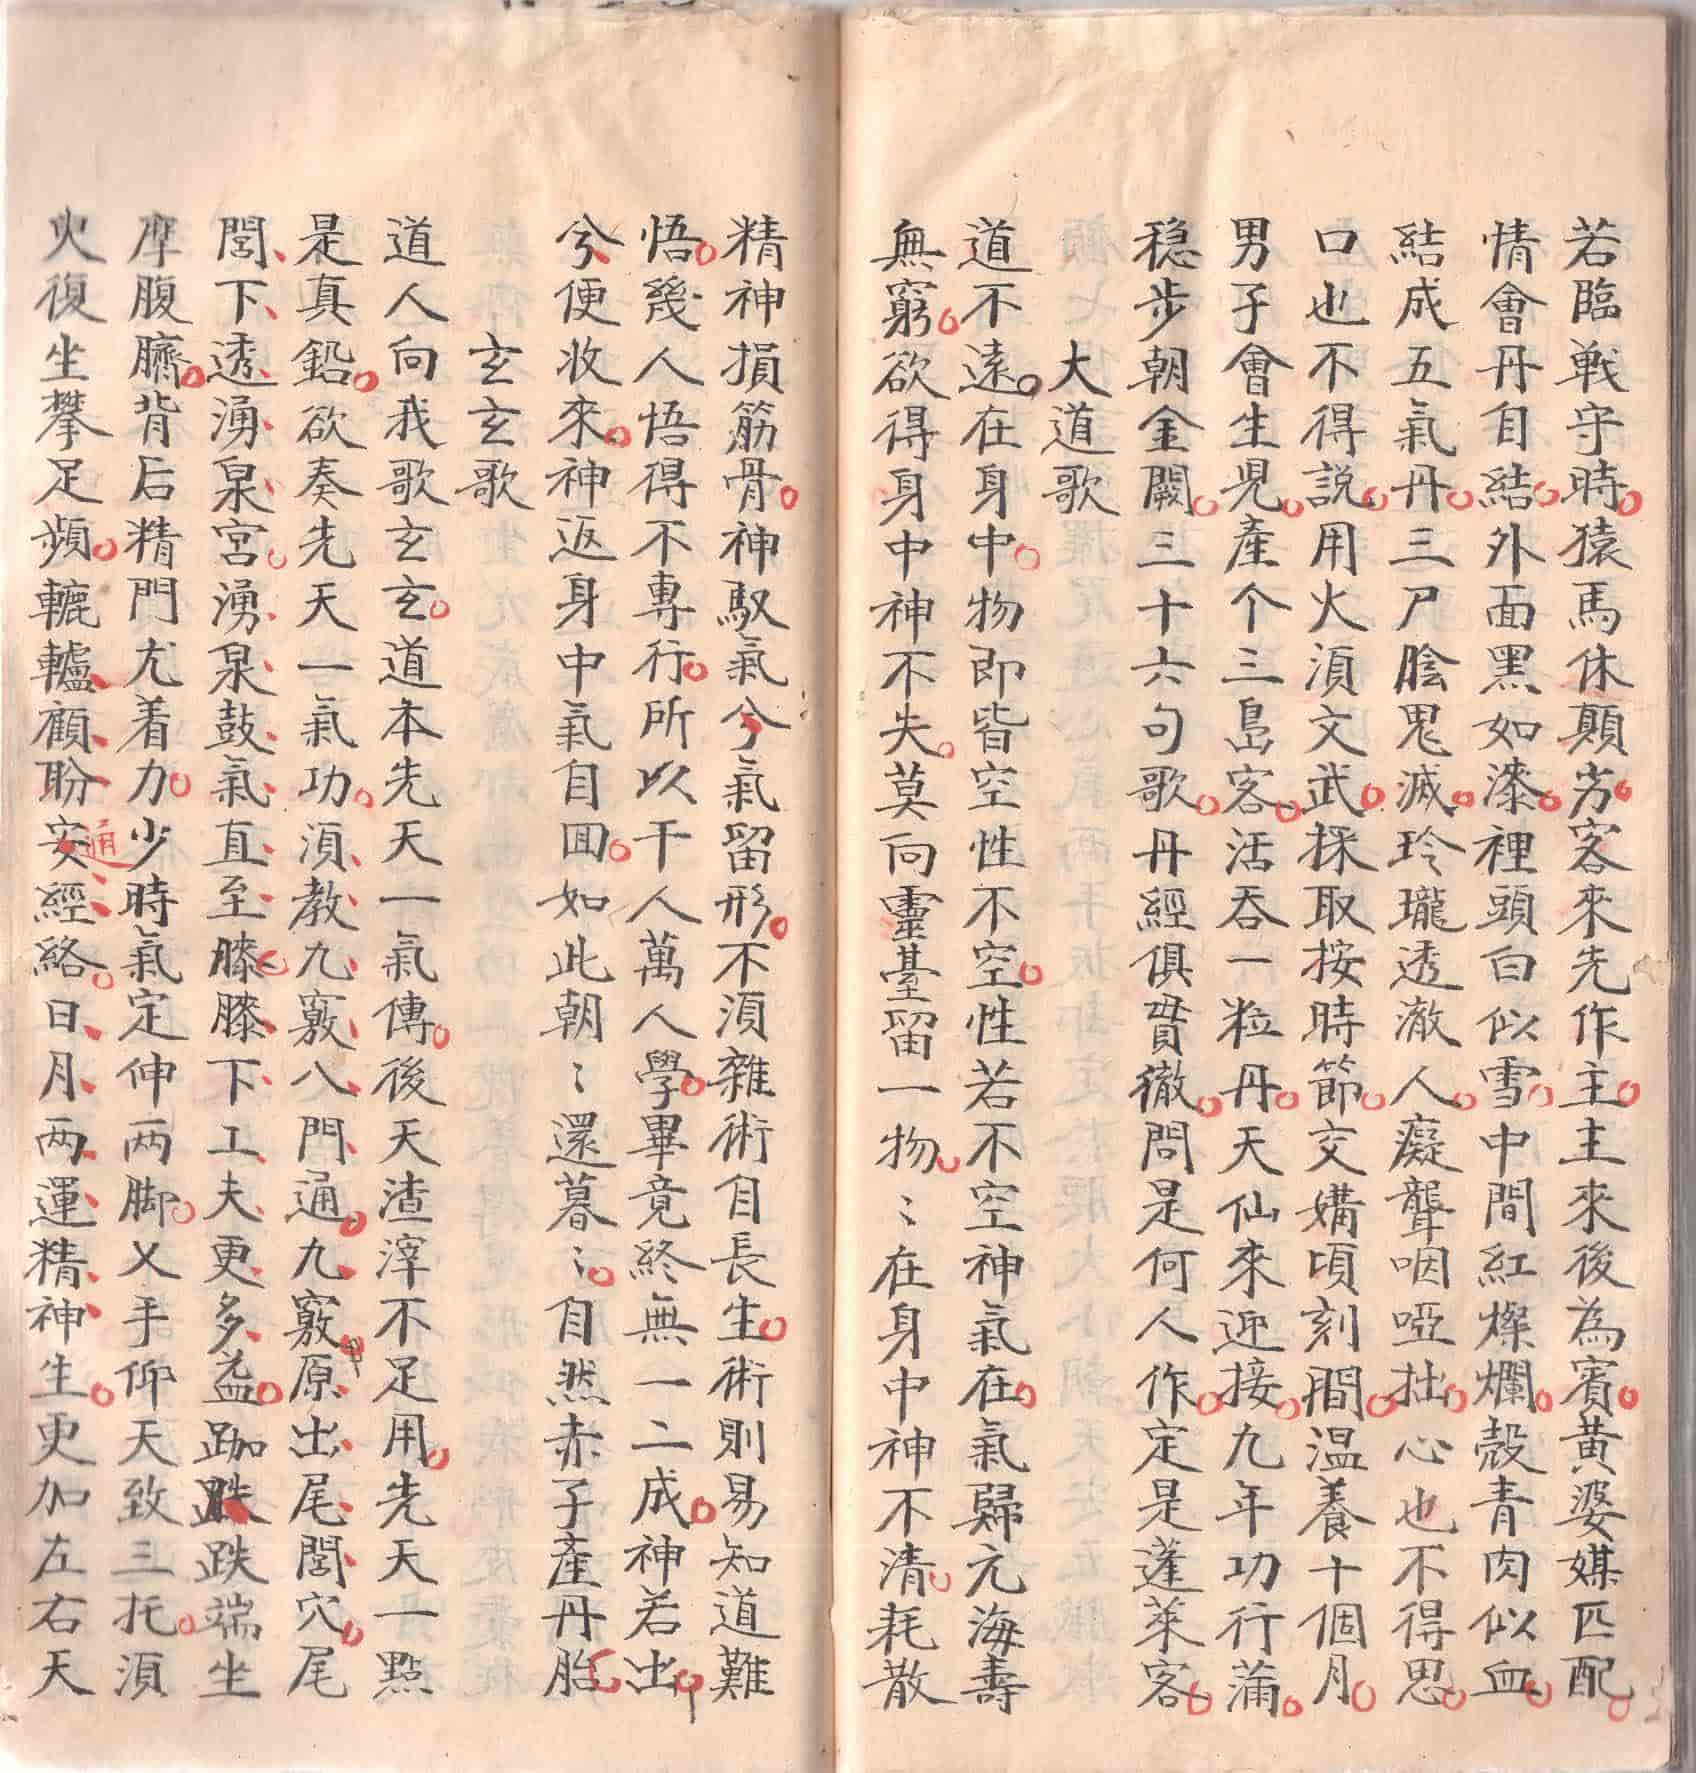 若臨戰守時猿馬休顛劣客來先作主主來後為賓黃婆媒匹配
情會丹自結外面黑如漆裡頭白似雪中間紅燦爛殼青肉似血
結成五氣丹三尸陰鬼滅玲瓏透澈人癡聾咽啞拙心也不得思
口也不得説用火湏文武採取按時節交媾頃刻間温養十個月
男子會生児產个三島客活吞一粒丹天仙來迎接九年功行蒲
穏步朝金闕三十六句歌丹經俱貫徹問是何人作定是蓬萊客
大道歌
道不遠在身中物即皆空性不空性若不空神氣在氣歸元海壽
無窮欲得身中神不失莫向靈臺留一物〻在身中神不清耗散
精神損筋骨神馭氣兮氣留形不湏雜術自長生術則易知道難
悟幾人悟得不專行所以千人萬人學畢竟終無一二成神若出
兮便收來神返身中氣自囬如此朝〻還暮〻自然赤子產丹胎
玄玄歌
道人向我歌玄玄道本先天一氣傳後天渣滓不足用先天一點
是真鉛欲奏先天一氣功湏教九竅八門通九竅原出尾閭穴尾
閭下透湧泉宮湧泉鼓氣直至膝膝下工夫更多益跏趺跌端坐
摩腹臍背后精門尤着力少時氣定伸両脚乂手仰天致三托湏
火復坐攀足頻轆轤顧盼安通經絡日月両運精神生更加左右天